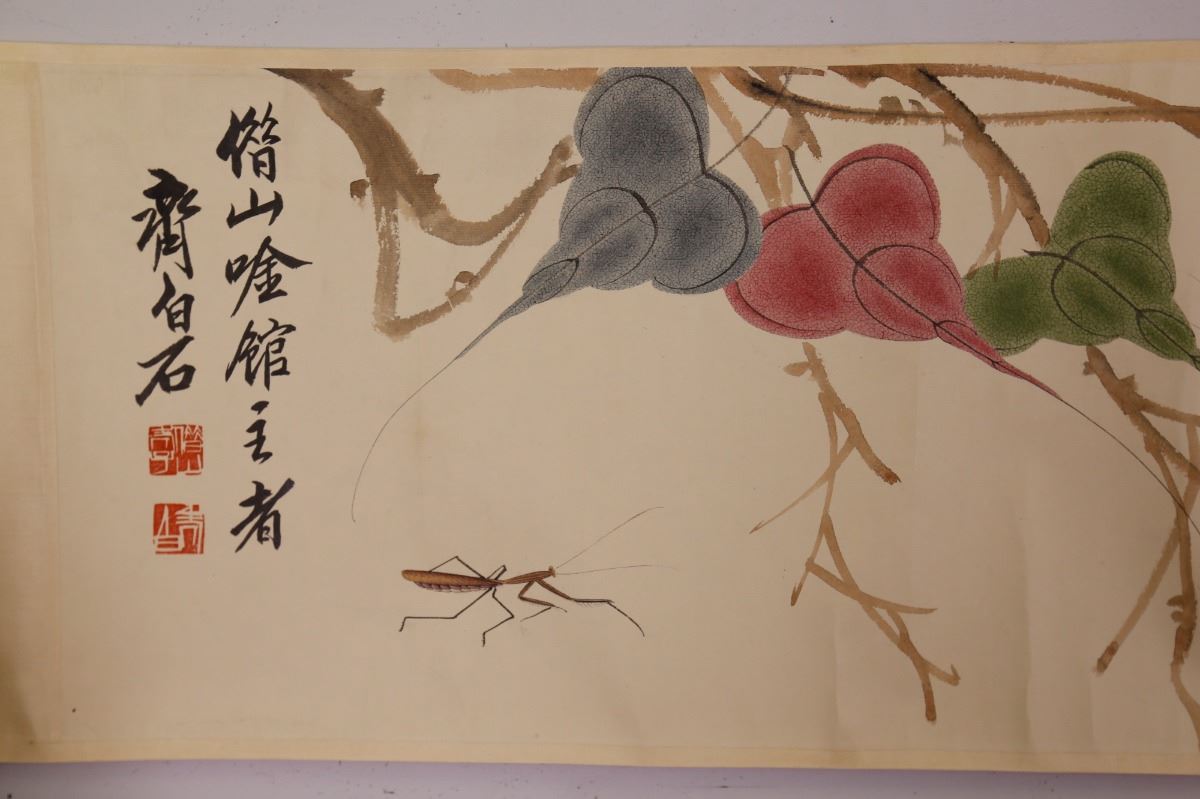 借山唫館主者
齊白石